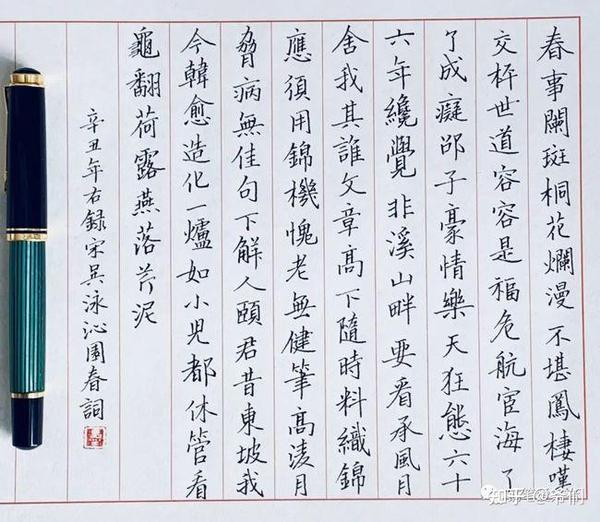 春事闌斑桐花爛漫不堪鳳棲嘆
交枰世道容容是福危航宦海了
了成癡邵子豪情樂天狂態六十
六年纔覺非溪山畔要看承風月
舍我其誰文章高下隨時料織錦
應須用錦機愧老無健筆高淩月
脅病無佳句下解人頤君昔東坡我
今韓愈造化一爐如小兒都休管看
龜翻荷露燕落芹泥
辛丑年右録宋吳泳沁園春詞
知乎